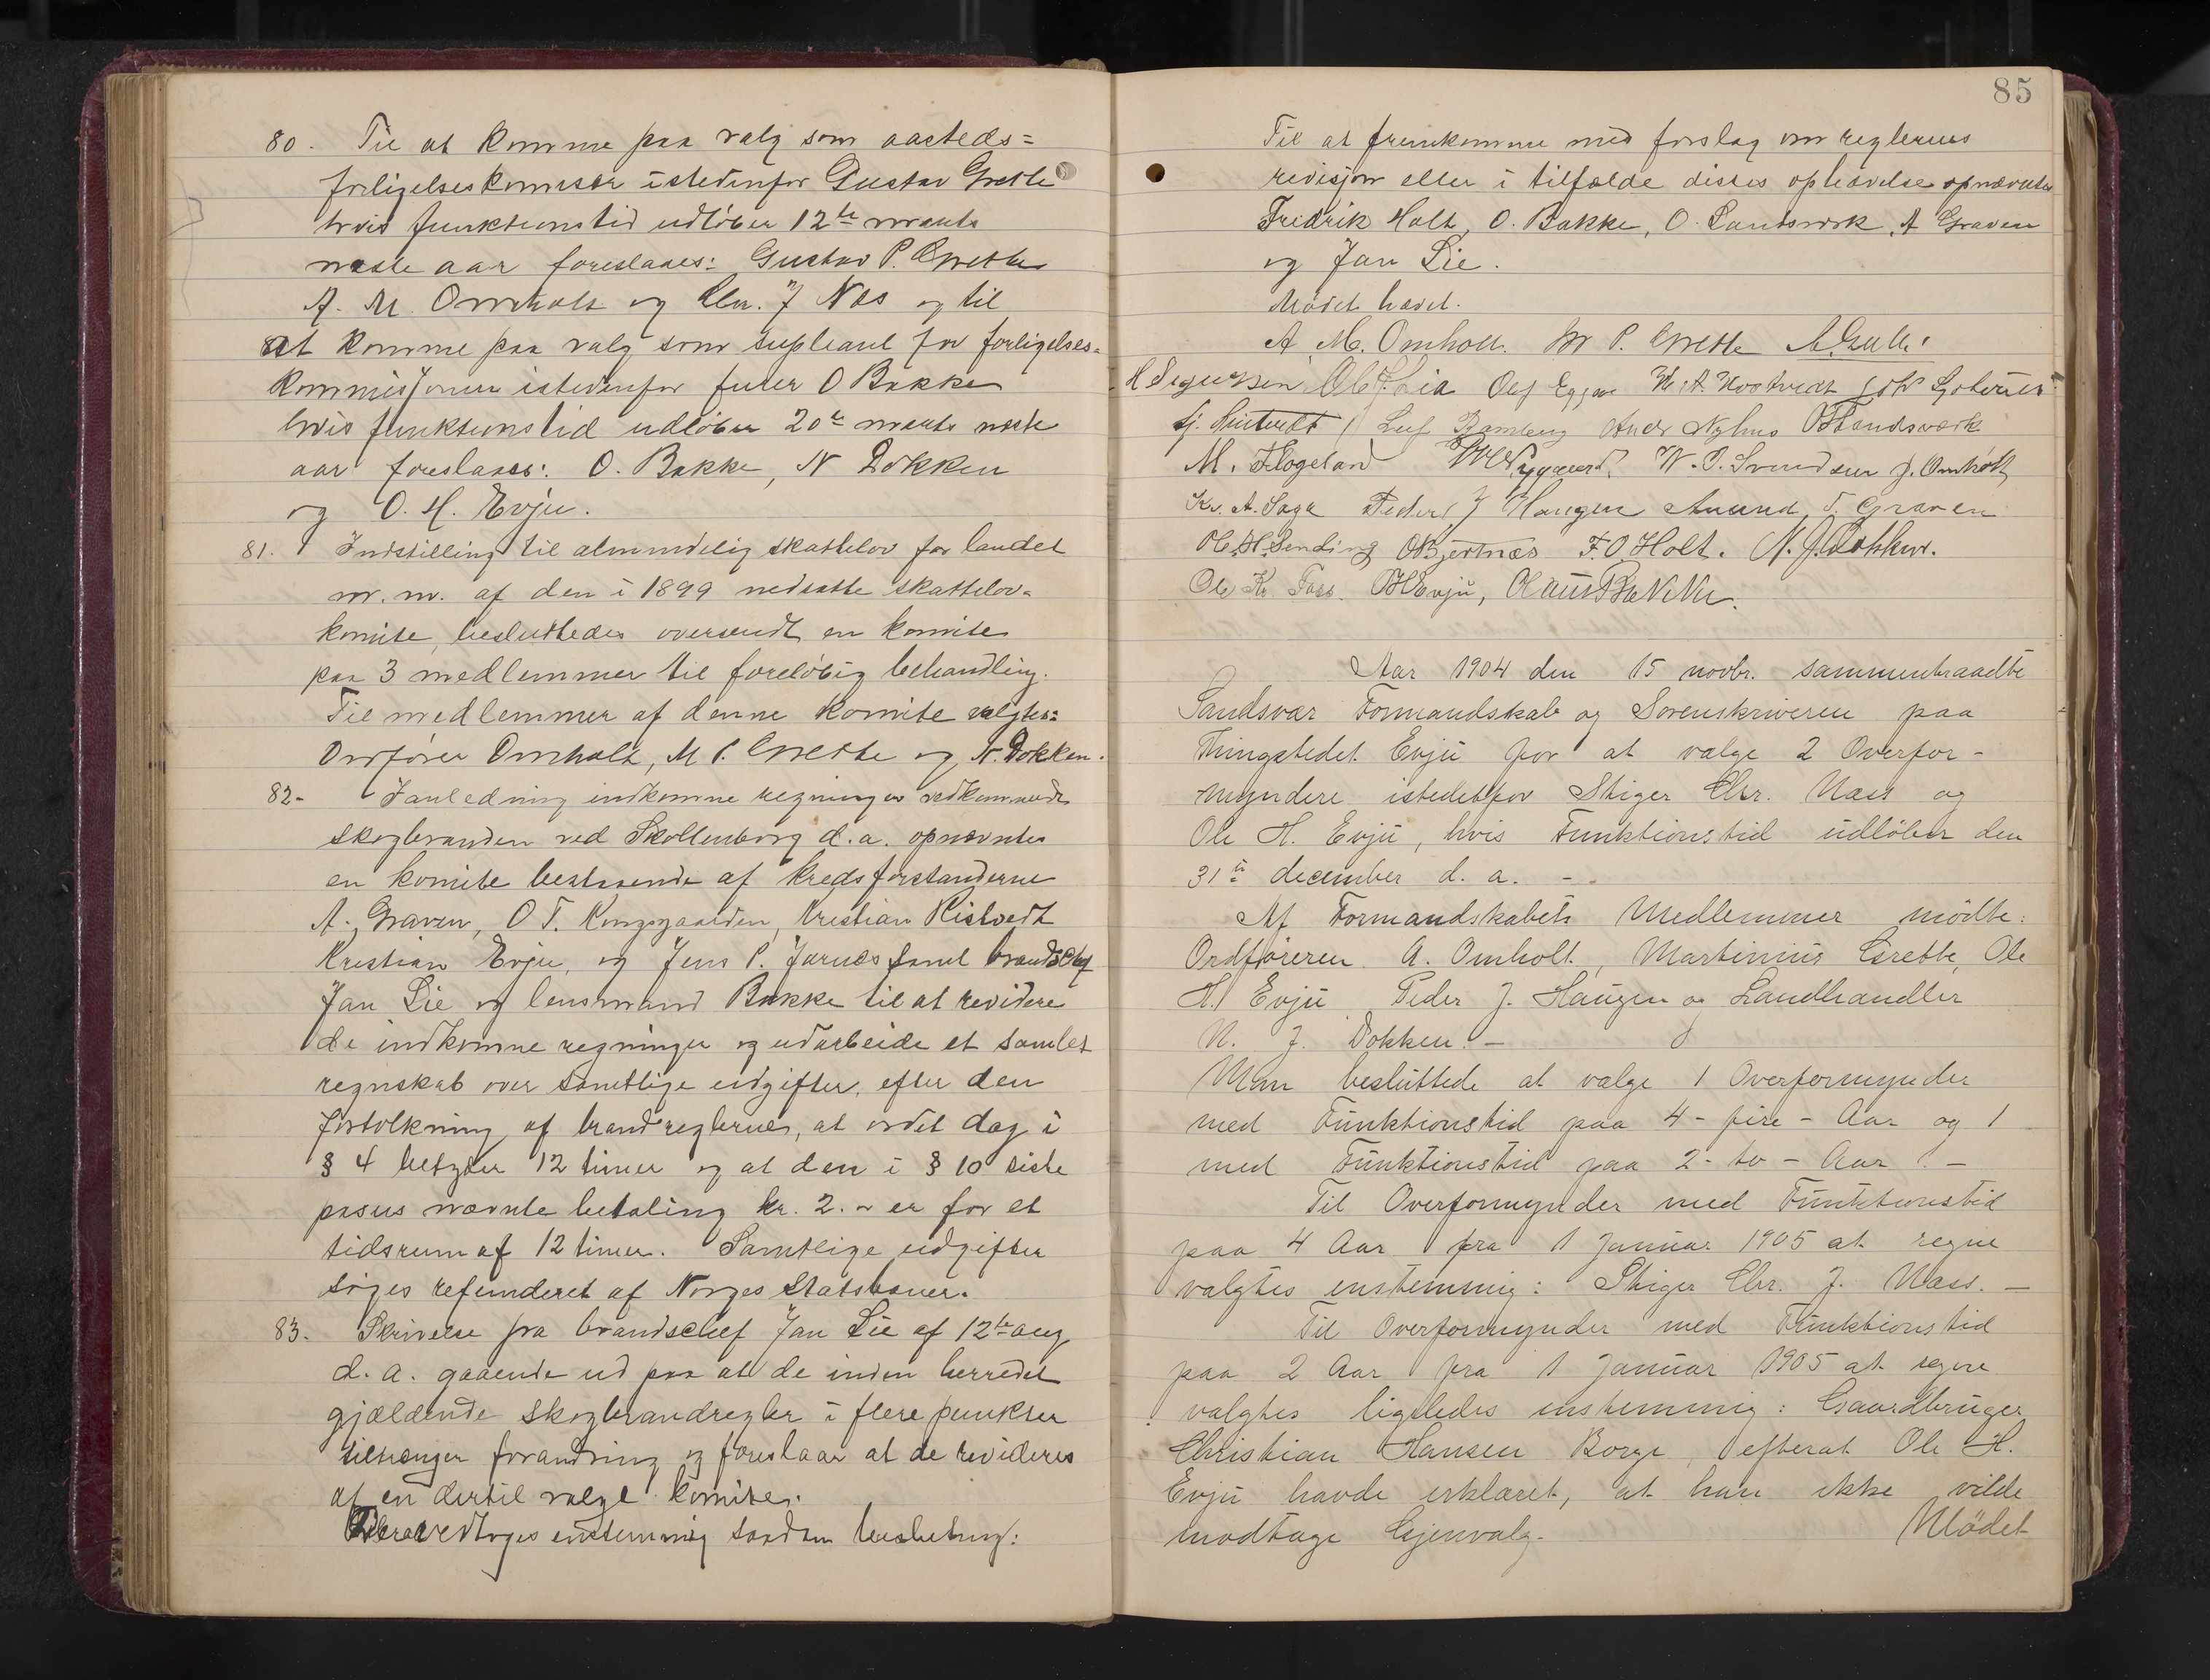 80. Til at komme paa valg som aasteds=
forligelseskomisær istedenfor Gustav Grette
hvis funktionstid udløber 12te marts
næste aar foreslaaes: Gustav P. Grette
A. M. Omholt og Chr. J Næs og til
at komme paa valg som supleant for forligelses-
kommisjonen istedenfor furer O Bakke
hvis funktionstid udløber 20te marts næste
aar foreslaaes: O. Bakke, N Dokken
og O. H. Evju.
81. Indstilling til almindelig skattelov for landet
m. m. af den i 1899 nedsatte skattelov-
komite, besluttedes oversendt en komite
paa 3 medlemmer til foreløbig behandling.
Til medlemmer af denne komite valgtes:
Ordfører Omholt, M P. Grette og N. Dokken.
82- I anledning indkomne regninger vedkommende
skogbranden ved Skollenborg d. a. opnævntes
en komite bestaaende af kredsforstanderne
A. Graven, O T. Kongsgaarden, Kristian Kistvedt
Kristian Evju, og Jens P. Jarnes samt brandchef
Jan Lie og lensmand Bakke til at revidere
de indkomne regninger og udarbeide et samlet
regnskab over samtlige udgifter, efter den
fortolkning af brandreglerne, at ordet dag i
§ 4 betyder 12 timer og at den i § 10 siste
pasus nævnte betaling kr. 2. - er for et
tidsrum af 12 timer. Samtlige udgifter
søges refunderet af Norges Statsbaner.
83. Skrivelse fra brandschef Jan Lie af 12te aug
d. a. gaaende ud paa at de inden herredet
gjældende skogbrandregler i flere punkter
tiltrænger forandring og foreslaar at de revideres
af en dertil valgt komite.
vedtoges enstemmig saadan beslutning:
85
Til at fremkomme med forslag om reglernes
revisjon eller i tilfælde disses ophævelse opnævntes
Fredrik Holt, O. Bakke, O. Landsverk, A Graven
og Jan Lie.
Mødet hævet.
A. M. Omholt. M P. Grette
Ole Olaf W. A. Kostvedt
Leif Bamberg Andr Nyhus OT Landsværk
M. Flogeland Nygaard. W. O. Svendsen J. Omholt
Kr. A. Saga Peder J Haugen Amund T. Graven
Ole H. Sending O Bjertnæs F. O Holt. N. J. Dokken.
Ole Kr. Foss. OH Evju, Olaus Bakke.
Aar 1904 den 15 novbr. sammentraadte
Sandsvær Formandskab og Sorenskriveren paa
Thingstedet Evju for at vælge 2 Overfor-
myndere istedetfor Stiger Chr. Næss og
Ole H. Evju, hvis Funktionstid udløber den
31te december d. a. -
Af Formandskabets Medlemmer mödte:
Ordføreren A. Omholt, Martinius Grette, Ole
H. Evju Peder J. Haugen og Landhandler
N. J. Dokken. -
Man besluttede at vælge 1 Overformynder
med Funktionstid paa 4 - fire - Aar og 1
med Funktionstid paa 2 - to - Aar. -
Til Overformynder med Funktionstid
paa 4 Aar fra 1 Januar 1905 at regne
valgtes enstemmig: Stiger Chr. J. Næss. -
Til Overformynder med Funktionstid
paa 2 Aar fra 1 Januar 1905 at regne
valgtes ligeledes enstemmig: Gaardbruger
Christian Hansen Borge, efterat Ole H.
Evju havde erklæret, at han ikke vilde
modtage Gjenvalg. Mödet